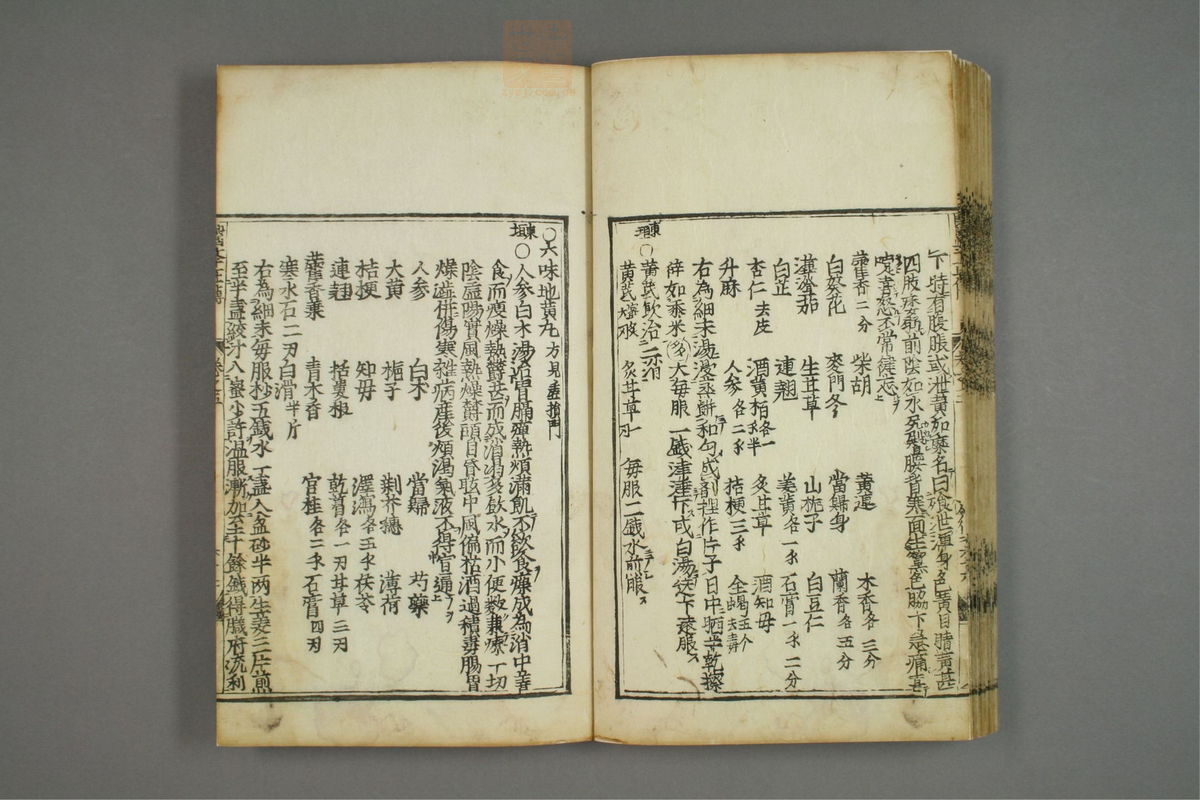 下特有腹脹或泄黃如藥名曰食泄渾身色黃目睛黃甚
四肢痿弱前陰如水尻臀腰背寒面生黧色脇下急痛善
嚏喜怒不常健忘
藿香二分 柴胡 黃連 木香各三分
白葵花 麥門冬 當歸身 蘭香各五分
蓽澄茄 生甘草 山梔子 白豆仁
白芷 連翹 姜黃各一錢 石膏一錢二分
杏仁去皮 酒黃柏各一錢半 炙甘草 酒知母
升麻 人參各二錢 桔梗三錢 全蝎五个去毒
右為細末湯浸蒸餅和勻成劑捏作片子日中晒半乾擦
碎如黍米大每服二錢津唾下或白湯送下遠服
東垣
○黃芪飲治三消
黃芪蜜炙 炙甘草 每服二錢水煎服
○六味地黃丸方見虛損門
東垣
○人參白朮湯治胃膈癉熱煩滿飢不飲食癉成為消中善
食而瘦燥熱鬱甚而成消渴多飲水而小便數兼療一切
陰虛陽實風熱燥鬱頭目昏眩中風偏枯酒過積毒腸胃
燥澁倂傷寒雜病產後煩渴氣液不得宣通
人參 白朮 當歸 芍藥
大黃 梔子 荊芥穗 薄荷
桔梗 知母 澤瀉各五錢 茯苓
連翹 栝蔞根 乾葛各一兩 甘草三兩
藿香葉 青木香 官桂各二錢 石膏四兩
寒水石二兩 白滑半斤
右為細末每服抄五錢水一盞入盆硝半兩生姜三片煎
至半盞絞汁入蜜少許溫服漸加至十餘錢得臟府流利